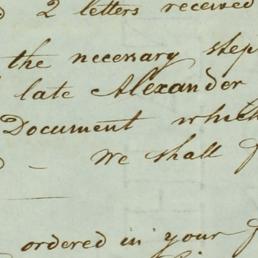 2 letters received
the necessary step
late Alexander
Document which
- We shall
ordered in your